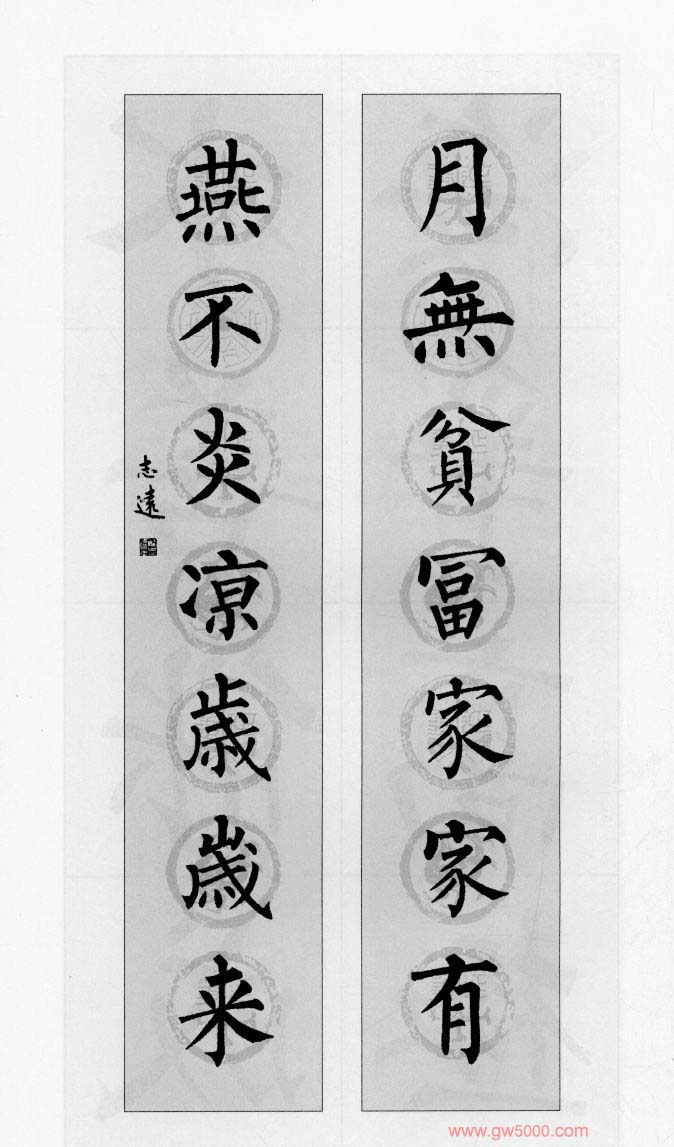 月無貧冨家家有
燕不炎凉歳歲来
志遠
www.gw5000.com